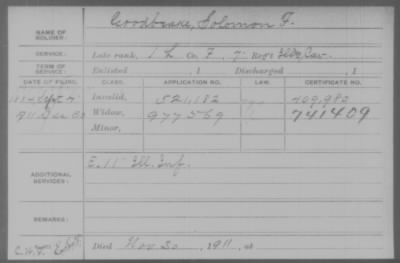 Goodbrake, Solomon F.
NAME OF SOLDIER:
SERVICE: Late rank, 1 L Co. F, 7 Reg't Cav.
TERM OF SERVICE: Enlisted , 1 Discharged , 1
DATE OF FILING. CLASS. APPLICATION NO. LAW. CERTIFICATE NO.
Sept Invalid, 521,182 409,982
1911 Dec Widow, 977569 741409
Minor,
ADDITIONAL SERVICES: E. 11" Ill. Inf.
REMARKS:
Died Nov 30, 1911, at